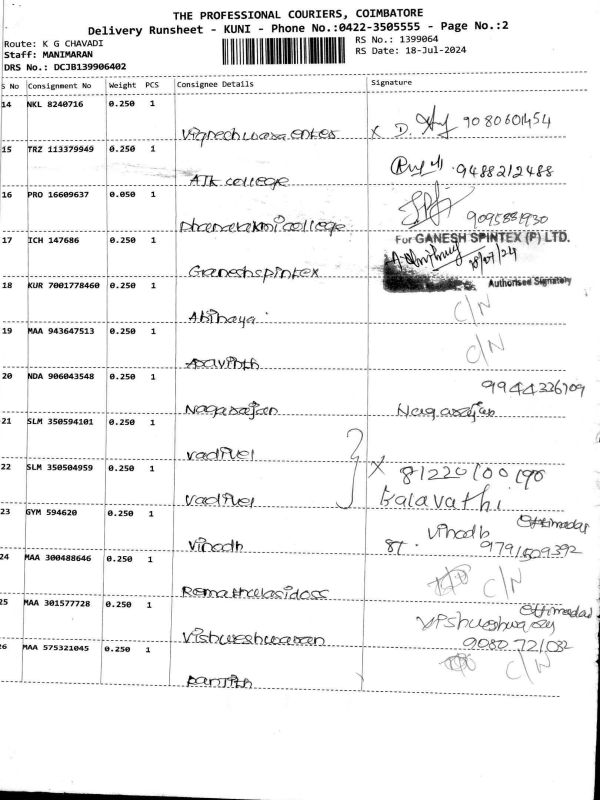 THE PROFESSIONAL COURIERS, COIMBATORE
Delivery Runsheet - KUNI - Phone No.:0422-3505555 - Page No.:2
Route: K G CHAVADI
RS No.: 1399064
Staff: MANIMARAN
RS Date: 18-Jul-2024
DRS No.: DCJB139906402
S No Consignment No Weight PCS Consignee Details Signature
14 NKL 8240716 0.250 1
Vigneshwara enter X D. 9080601454
15 TRZ 113379949 0.250 1
AJK college 9488212488
16 PRO 16609637 0.050 1
Dhanalakmi college 9095881930
17 ICH 147686 0.250 1 For GANESH SPINTEX (P) LTD.
Ganesh spintex 18/07/24
18 KUR 7001778460 0.250 1 Authorised Signatory
Abinaya C/N
19 MAA 943647513 0.250 1
Aravinth C/N
20 NDA 906043548 0.250 1 9944326709
Nagarajan Nagarajan
21 SLM 350594101 0.250 1
Vadivel
22 SLM 350504959 0.250 1 X 8122010090
Vadivel Balavathi
23 GYM 594620 0.250 1 Ettimadai
Vinodh Vinodh
9791509392
24 MAA 300488646 0.250 1
Remathulasidoss C/N
25 MAA 301577728 0.250 1 Ettimadai
Vishweshwaran
26 MAA 575321045 0.250 1 9080721082
Ranjith C/N